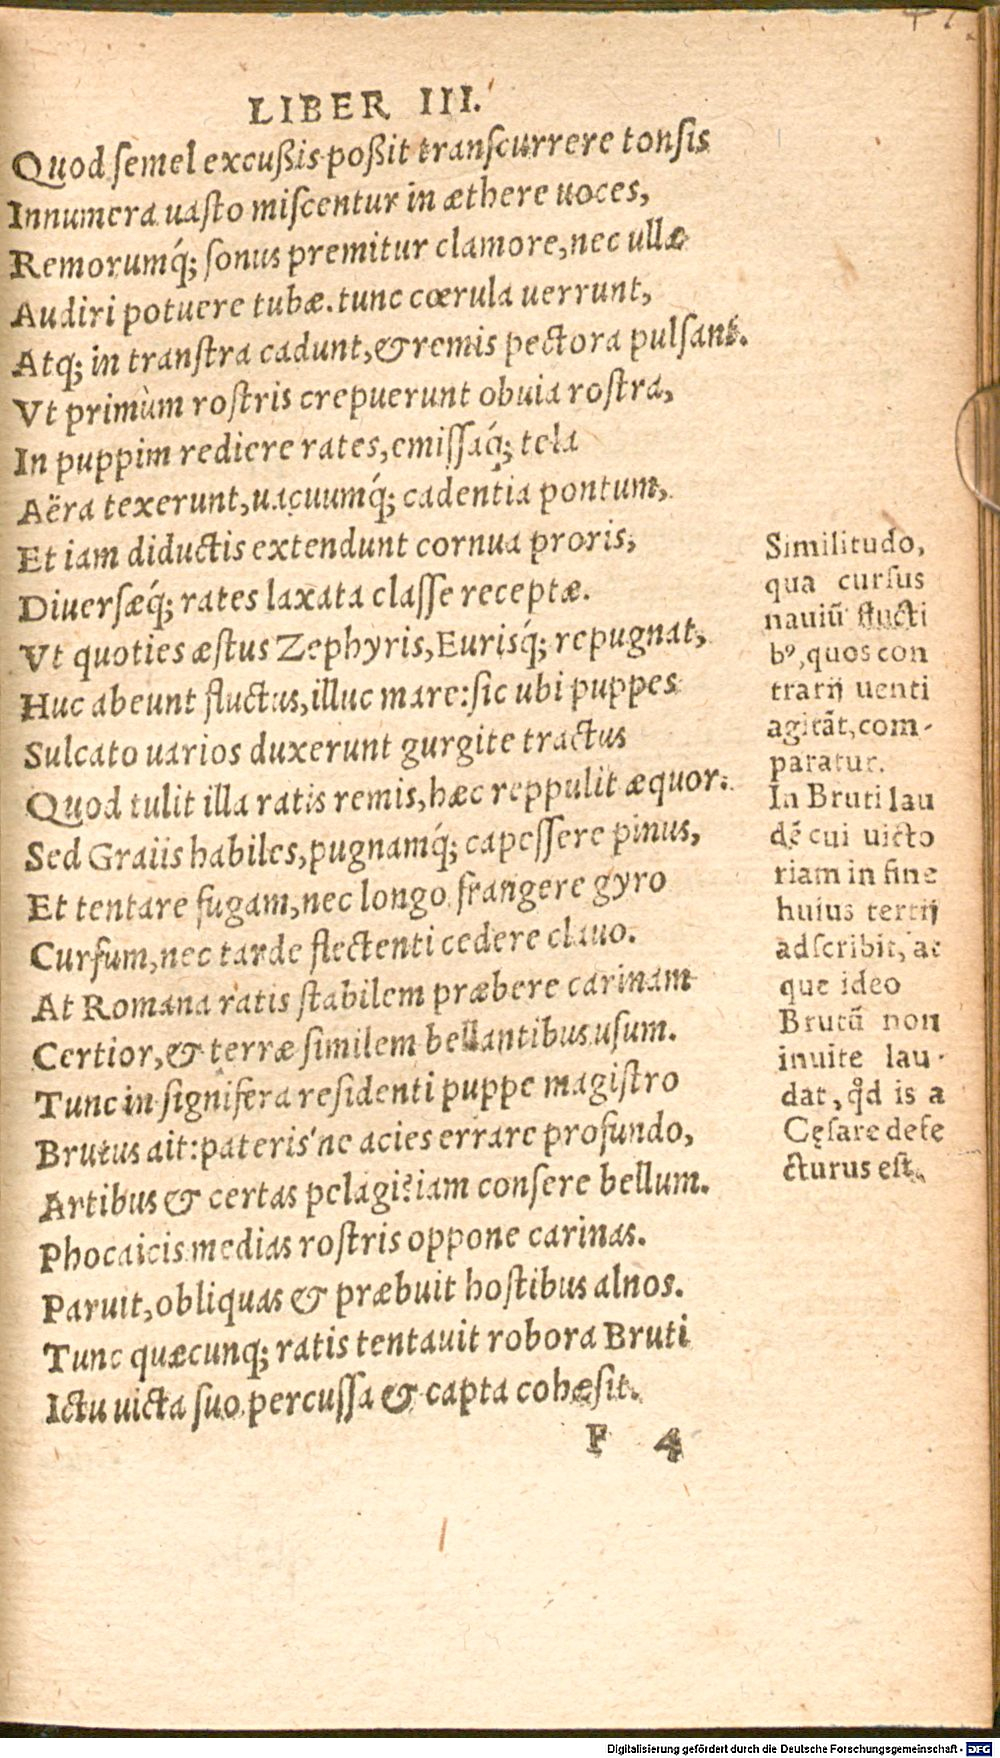 LIBER III.
Quod ſemel excußis poßit tranſcurrere tonſis
Innumera uaſto miſcentur in æthere uoces,
Remorumq́; ſonus premitur clamore, nec ullæ
Audiri potuere tubæ. tunc cœrula uerrunt,
Atq; in tranſtra cadunt, & remis pectora pulſant.
Vt primùm roſtris crepuerunt obuia roſtra,
In puppim rediere rates, emiſſaq́; tela
Aëra texerunt, uacuumq́; cadentia pontum,
Et iam diductis extendunt cornua proris,
Diuerſæq́; rates laxata claſſe receptæ.
Vt quoties æſtus Zephyris, Eurisq́; repugnat,
Huc abeunt fluctus, illuc mare: ſic ubi puppes
Sulcato uarios duxerunt gurgite tractus
Quod tulit illa ratis remis, hæc reppulit æquor.
Sed Graiis habiles, pugnamq́; capeſſere pinus,
Et tentare fugam, nec longo frangere gyro
Curſum, nec tarde flectenti cedere clauo.
At Romana ratis ſtabilem præbere carinam
Certior, & terræ ſimilem bellantibus uſum.
Tunc in ſignifera reſidenti puppe magiſtro
Brutus ait: pateris'ne acies errare profundo,
Artibus & certas pelagi? iam conſere bellum.
Phocaicis medias roſtris oppone carinas.
Paruit, obliquas & præbuit hoſtibus alnos.
Tunc quæcunq; ratis tentauit robora Bruti
Ictu uicta ſuo percuſſa & capta cohæſit.
F 4
Similitudo,
qua curſus
nauiũ flucti
bꝰ, quos con
trarij uenti
agitãt, com-
paratur.
In Bruti lau
dẽ cui uicto
riam in fine
huius tertij
adſcribit, at
que ideo
Brutũ non
inuite lau-
dat, qd is a
Cęſare defe
cturus eſt.
Digitalisierung gefördert durch die Deutsche Forschungsgemeinschaft - DFG